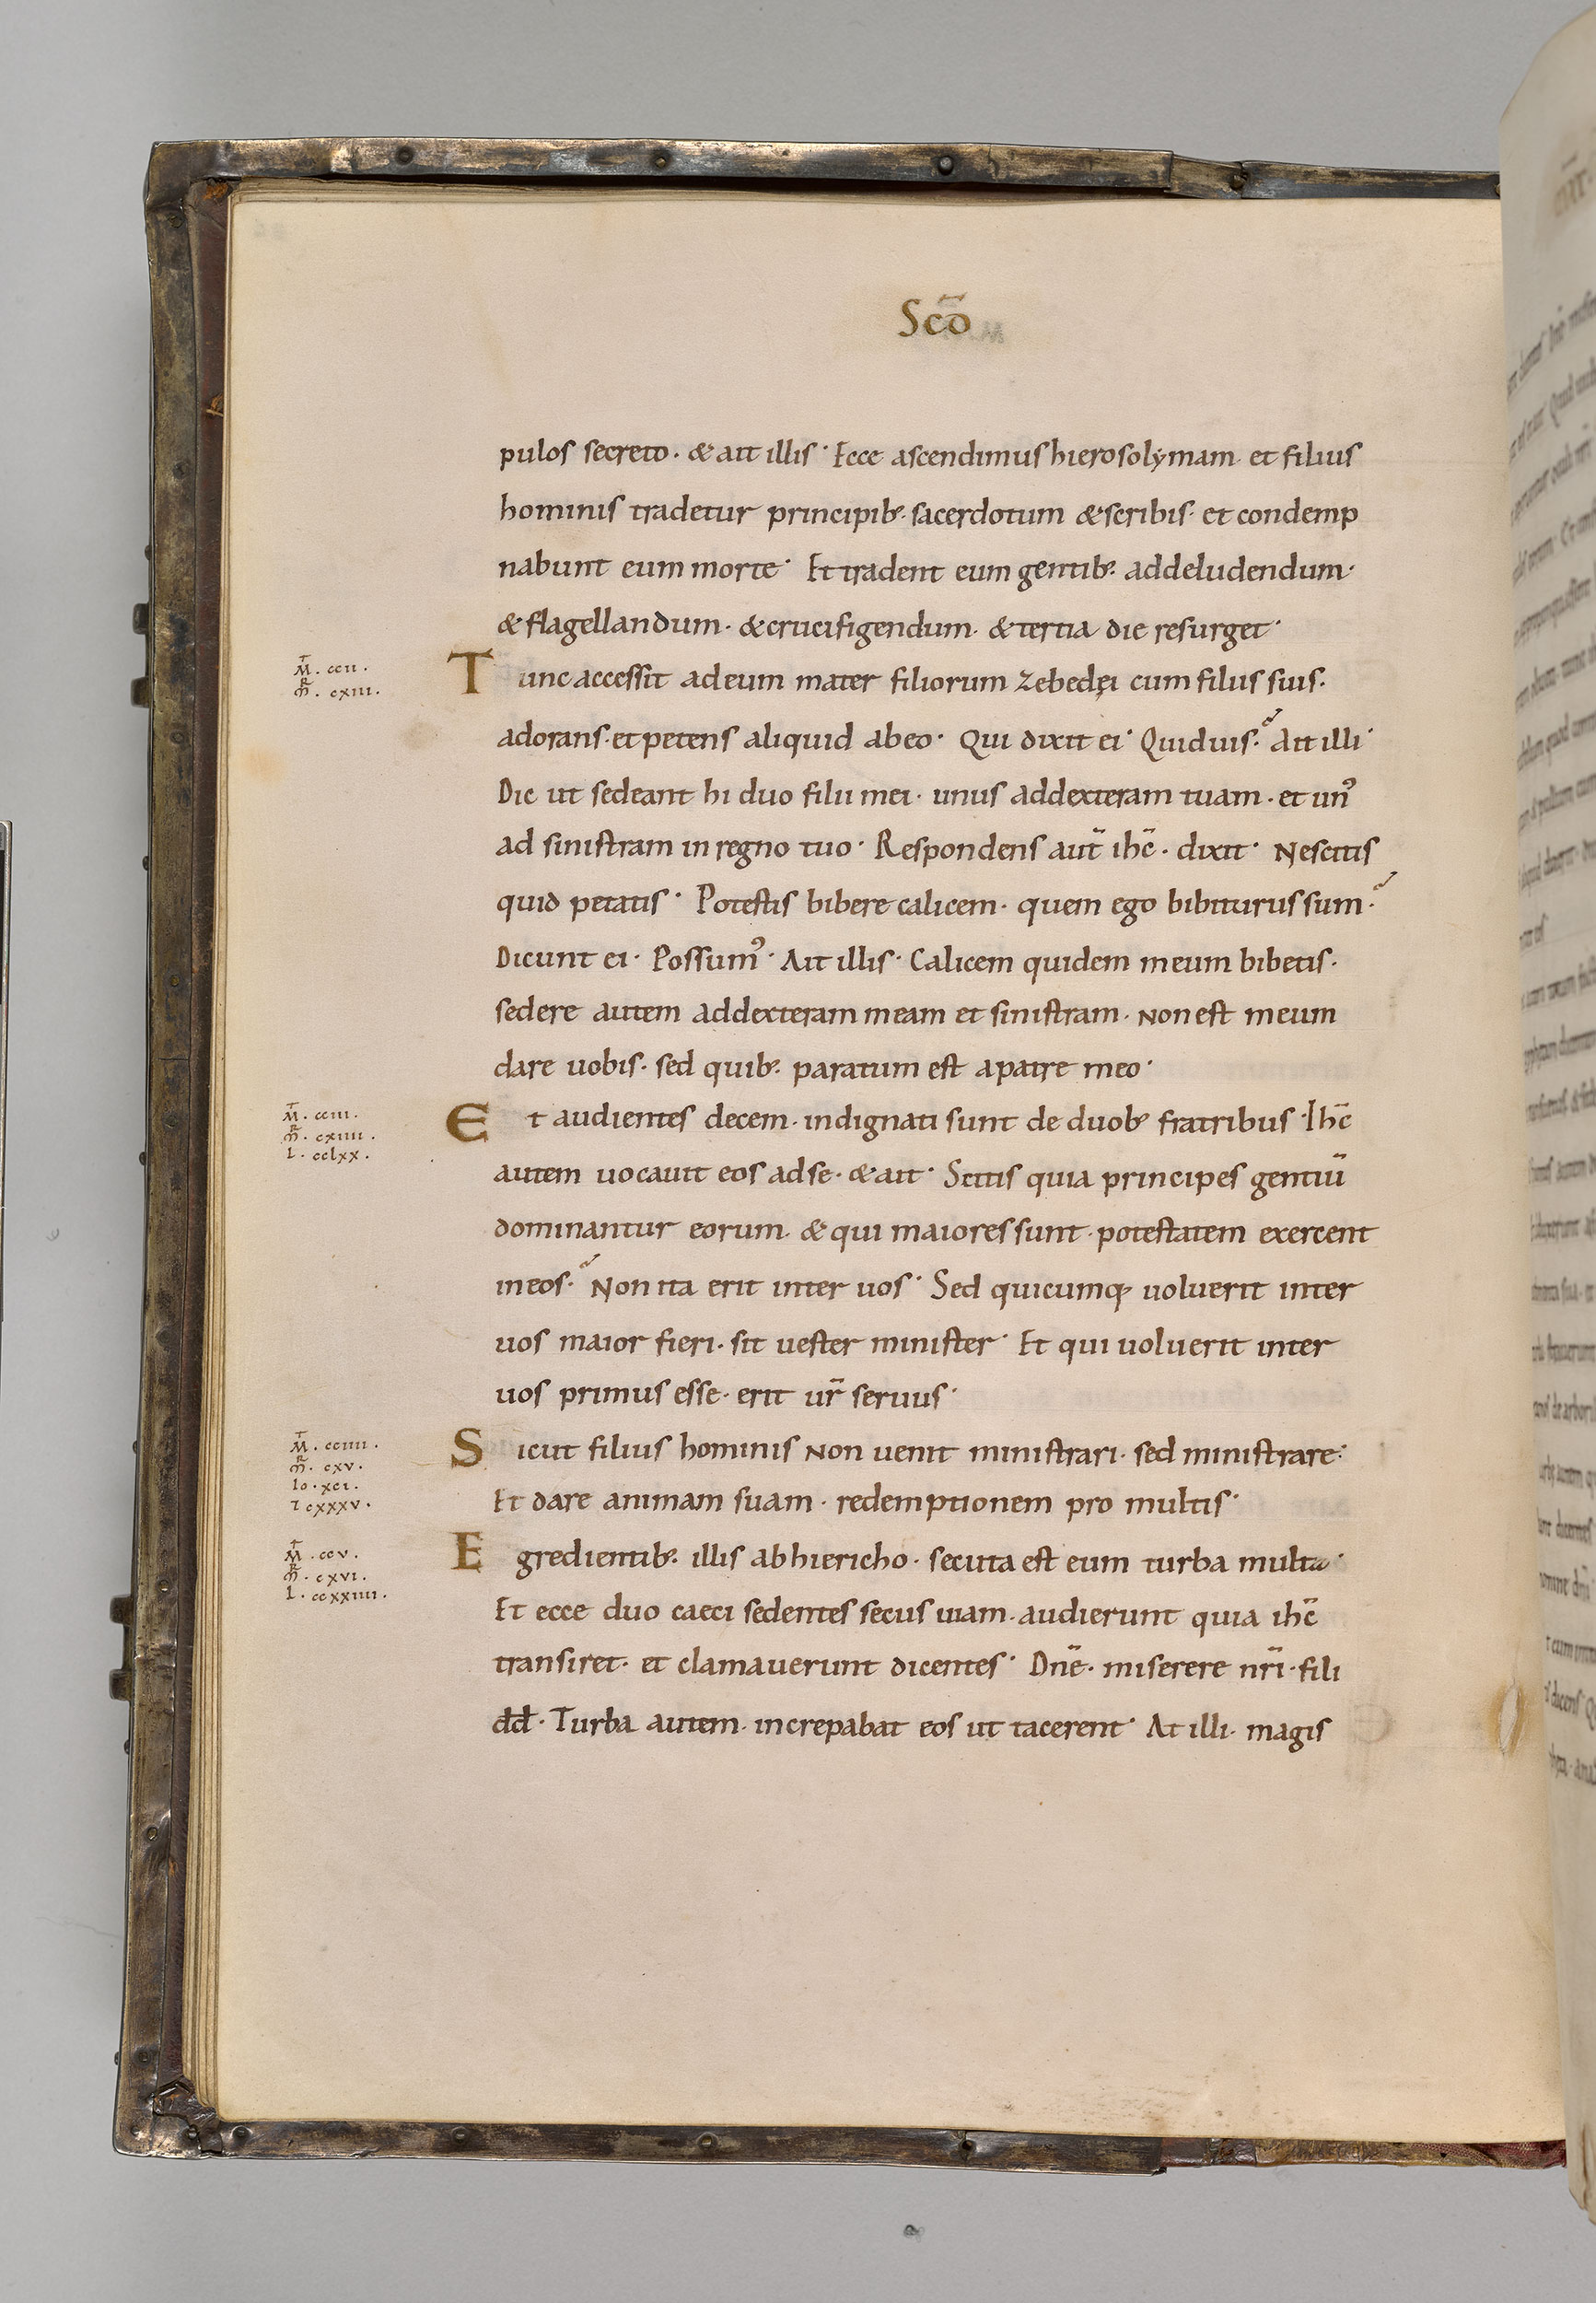 Scd̄
pulos secreto· & ait illis· Ecce ascendimus hierosolymam· et filius
hominis tradetur principib; sacerdotum & scribis· et condemp
nabunt eum morte· Et tradent eum gentib; ad deludendum·
& flagellandum· & crucifigendum· & tertia die resurget·
M̄T· ccii·
MR· cxiii·
Tunc accessit ad eum mater filiorum zebedęi cum filiis suis·
adorans· et petens aliquid ab eo· Qui dixit ei· Quid uis· Ait illi·
Dic ut sedeant hi duo filii mei· unus ad dexteram tuam· et un᾿
ad sinistram in regno tuo· Respondens aut̄ ihc̄· dixit· Nescitis
quid petatis· Potestis bibere calicem· quem ego bibiturus sum·
Dicunt ei· Possum᾿· Ait illis· Calicem quidem meum bibetis·
sedere autem ad dexteram meam et sinistram· non est meum
dare uobis· sed quib; paratum est a patre meo·
MT· cciii·
MR· cxiiii·
L· cclxx·
Et audientes decem· indignati sunt de duob; fratribus· Ihc̄
autem uocauit eos ad se· & ait· Scitis quia principes gentiū
dominantur eorum· & qui maiores sunt· potestatem exercent
in eos· Non ita erit inter uos· Sed quicumq; uoluerit inter
uos maior fieri· sit uester minister· Et qui uoluerit inter
uos primus esse· erit ur̄ seruus·
MT· cciiii·
MR· cxv·
Io· xci·
l cxxxv·
Sicut filius hominis non uenit ministrari· sed ministrare·
Et dare animam suam· redemptionem pro multis·
MT· ccv·
MR· cxvi·
L· ccxxiiii·
Egredientib; illis ab hiericho· secuta est eum turba multa·
Et ecce duo caeci sedentes secus uiam· audierunt quia ihc̄
transiret· et clamauerunt dicentes· Dn̄e· miserere nr̄i· fili
dd̄· Turba autem· increpabat eos ut tacerent· At illi· magis